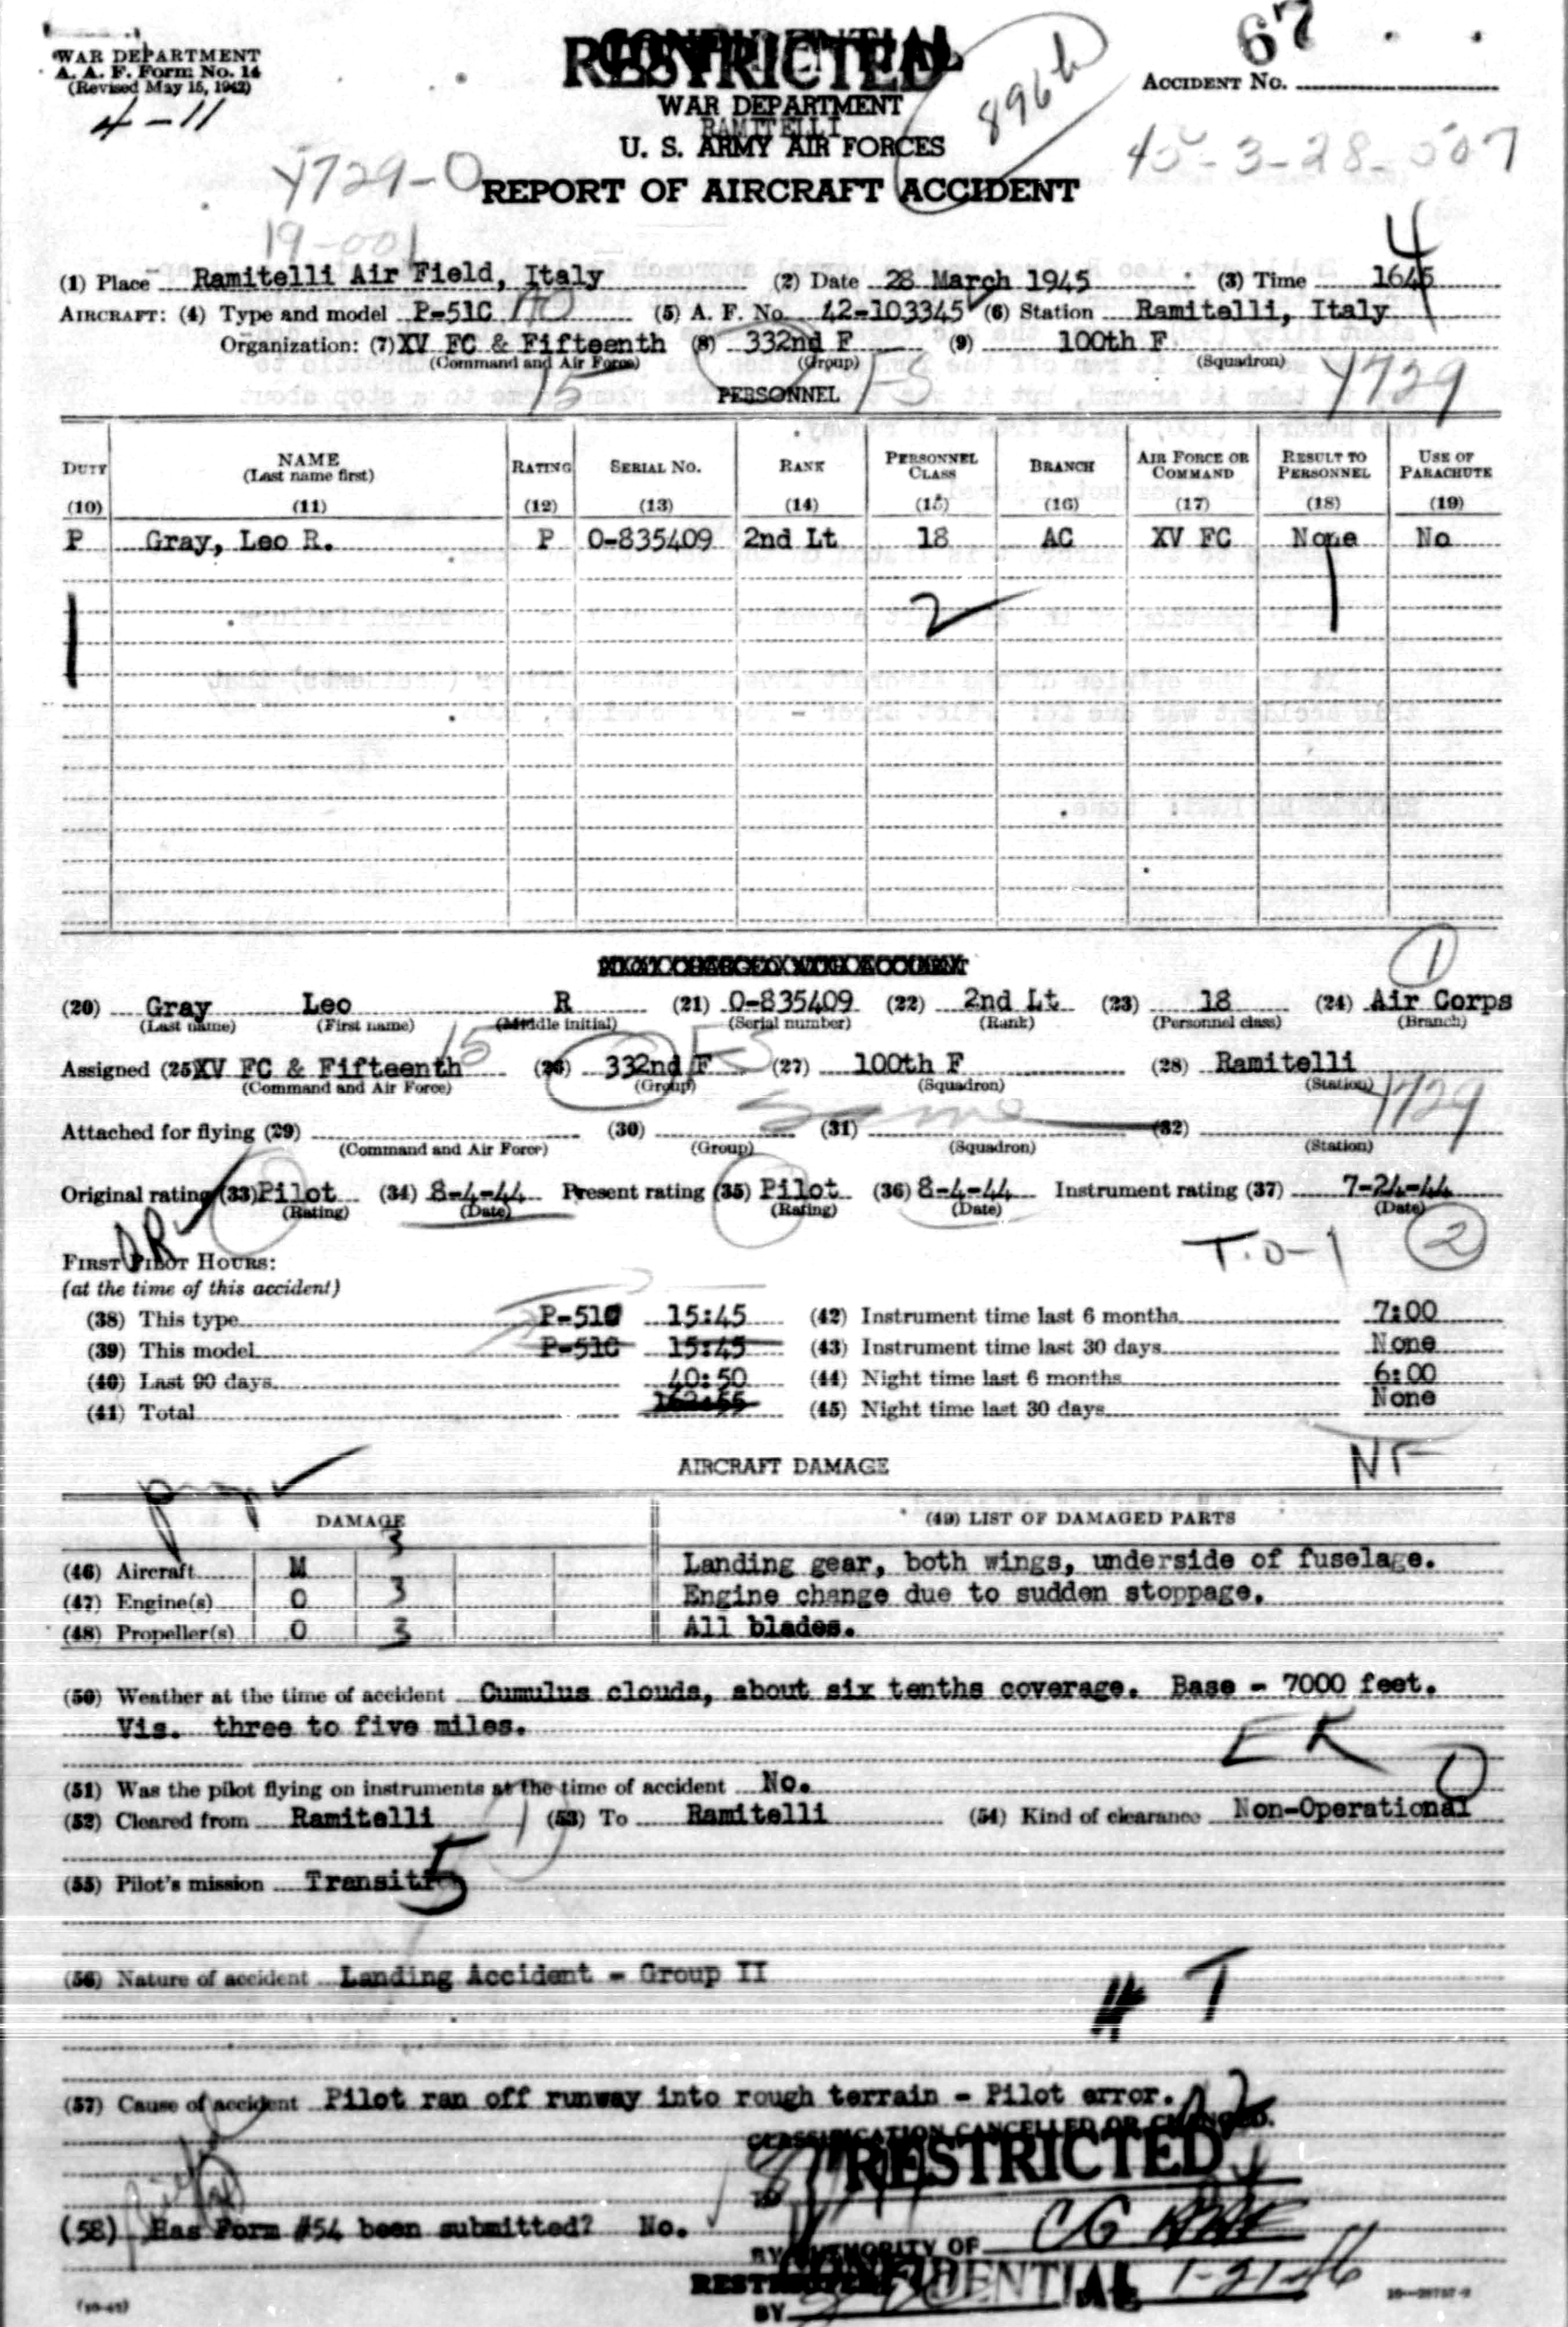 67
WAR DEPARTMENT
A. A. F. Form No. 14
(Revised May 15, 1942)
4-11
CONFIDENTIAL
RESTRICTED
WAR DEPARTMENT
RAMITELLI
U. S. ARMY AIR FORCES
REPORT OF AIRCRAFT ACCIDENT
896th
ACCIDENT No.
45-3-28-507
Y729-O
19-001
4
(1) Place Ramitelli Air Field, Italy (2) Date 28 March 1945 (3) Time 1645
AIRCRAFT: (4) Type and model P-51C (5) A. F. No. 42-103345 (6) Station Ramitelli, Italy
Organization: (7) XV FC & Fifteenth (8) 332nd F (9) 100th F
(Command and Air Force) (Group) (Squadron)
15 Y729
PERSONNEL
DUTY NAME (Last name first) RATING SERIAL NO. RANK PERSONNEL CLASS BRANCH AIR FORCE OR COMMAND RESULT TO PERSONNEL USE OF PARACHUTE
(10) (11) (12) (13) (14) (15) (16) (17) (18) (19)
P Gray, Leo R. P O-835409 2nd Lt 18 AC XV FC None No
1 2 1
1
(20) Gray Leo R (21) O-835409 (22) 2nd Lt (23) 18 (24) Air Corps
(Last name) (First name) (Middle initial) (Serial number) (Rank) (Personnel class) (Branch)
15
Assigned (25) XV FC & Fifteenth (26) 332nd F (27) 100th F (28) Ramitelli
(Command and Air Force) (Group) (Squadron) (Station)
Same Y729
Attached for flying (29) (30) (31) (32)
(Command and Air Force) (Group) (Squadron) (Station)
Original rating (33) Pilot (34) 8-4-44 Present rating (35) Pilot (36) 8-4-44 Instrument rating (37) 7-24-44
(Rating) (Date) (Rating) (Date) (Date)
T.O-1 2
FIRST PILOT HOURS:
(at the time of this accident)
(38) This type P-51C 15:45 (42) Instrument time last 6 months 7:00
(39) This model P-51C 15:45 (43) Instrument time last 30 days None
(40) Last 90 days 40:50 (44) Night time last 6 months 6:00
(41) Total (45) Night time last 30 days None
NF
AIRCRAFT DAMAGE
DAMAGE (49) LIST OF DAMAGED PARTS
(46) Aircraft M 3 Landing gear, both wings, underside of fuselage.
(47) Engine(s) O 3 Engine change due to sudden stoppage.
(48) Propeller(s) O 3 All blades.
(50) Weather at the time of accident Cumulus clouds, about six tenths coverage. Base - 7000 feet.
Vis. three to five miles.
(51) Was the pilot flying on instruments at the time of accident No.
(52) Cleared from Ramitelli (53) To Ramitelli (54) Kind of clearance Non-Operational
(55) Pilot's mission Transiti
5
(56) Nature of accident Landing Accident - Group II
T
(57) Cause of accident Pilot ran off runway into rough terrain - Pilot error.
CLASSIFICATION CANCELLED OR CHANGED.
RESTRICTED
(58) Has Form #54 been submitted? No.
BY AUTHORITY OF CG AAF
CONFIDENTIAL
RESTRICTED
1-21-46
BY